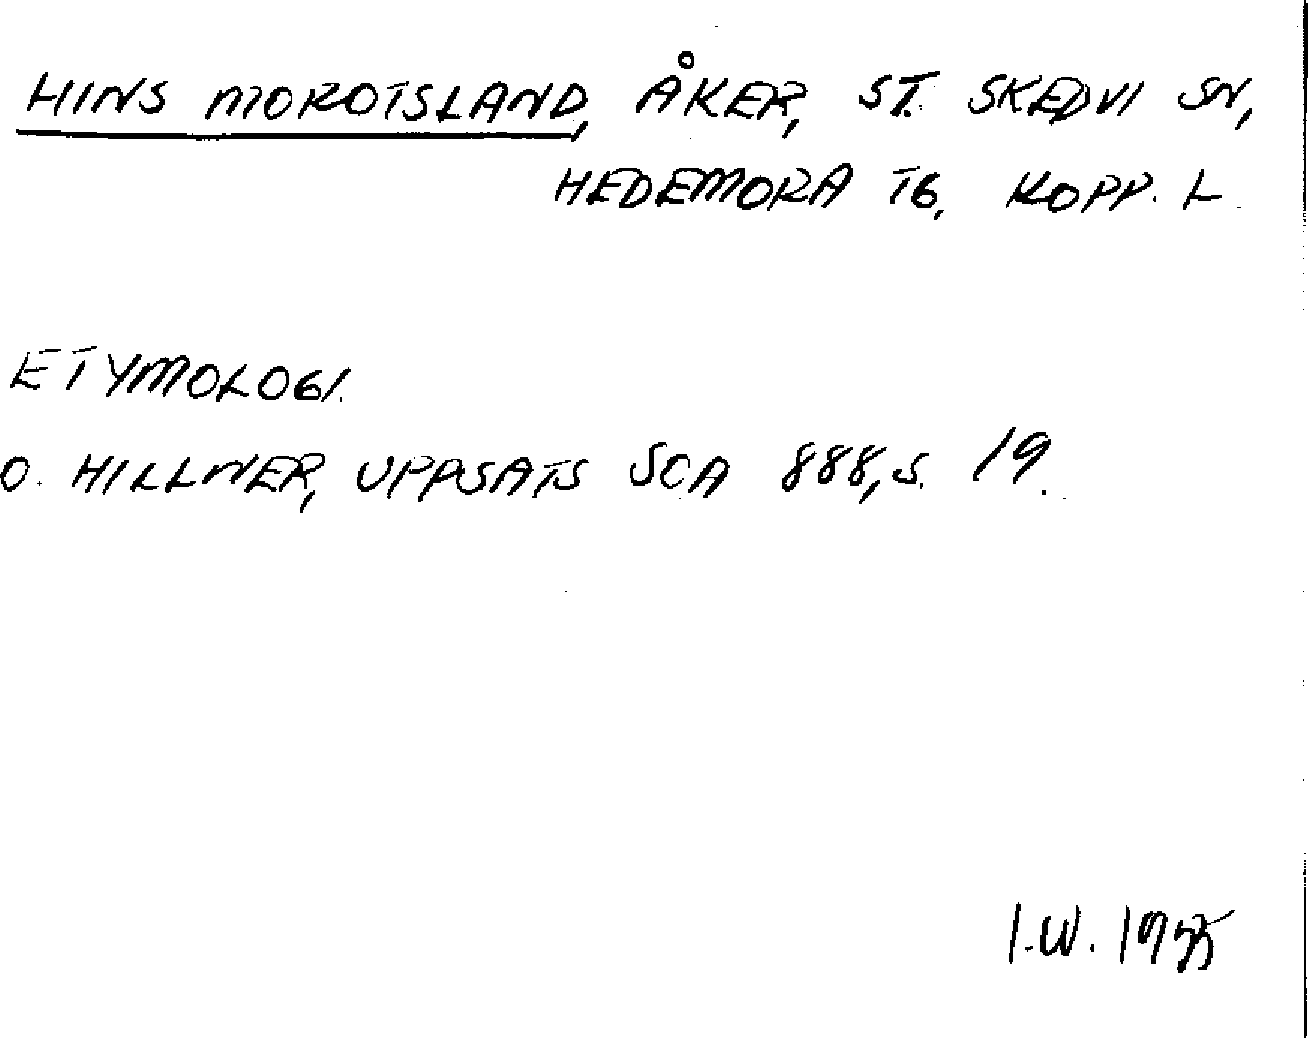 HINS MOROTSLAND, ÅKER, ST. SKEDVI SN,
HEDEMORA TG, KOPP. L.
ETYMOLOGI.
O. HILLNER, UPPSATS SOA 888, S. 19.
I.W. 1975